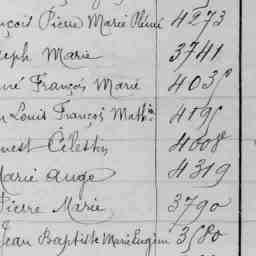 nçois Pierre Marie Rémi 4273
seph Marie 3741
né François Marie 4035
n Louis François Mathin 4195
nest Célestin 4008
Marie Ange 4319
Pierre Marie 3790
Jean Baptiste Marie Eugène 3580